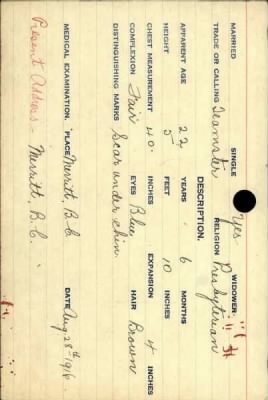 MARRIED SINGLE Yes WIDOWER
TRADE OR CALLING Teamster RELIGION Presbyterian
DESCRIPTION.
APPARENT AGE 22 YEARS 6 MONTHS
HEIGHT 5 FEET 10 INCHES
CHEST MEASUREMENT 40 INCHES EXPANSION 4 INCHES
COMPLEXION Fair EYES Blue HAIR Brown
DISTINGUISHING MARKS Scar under chin.
MEDICAL EXAMINATION. PLACE Merritt, B.C. DATE Aug 28th 1916
Present Address - Merritt, B.C.